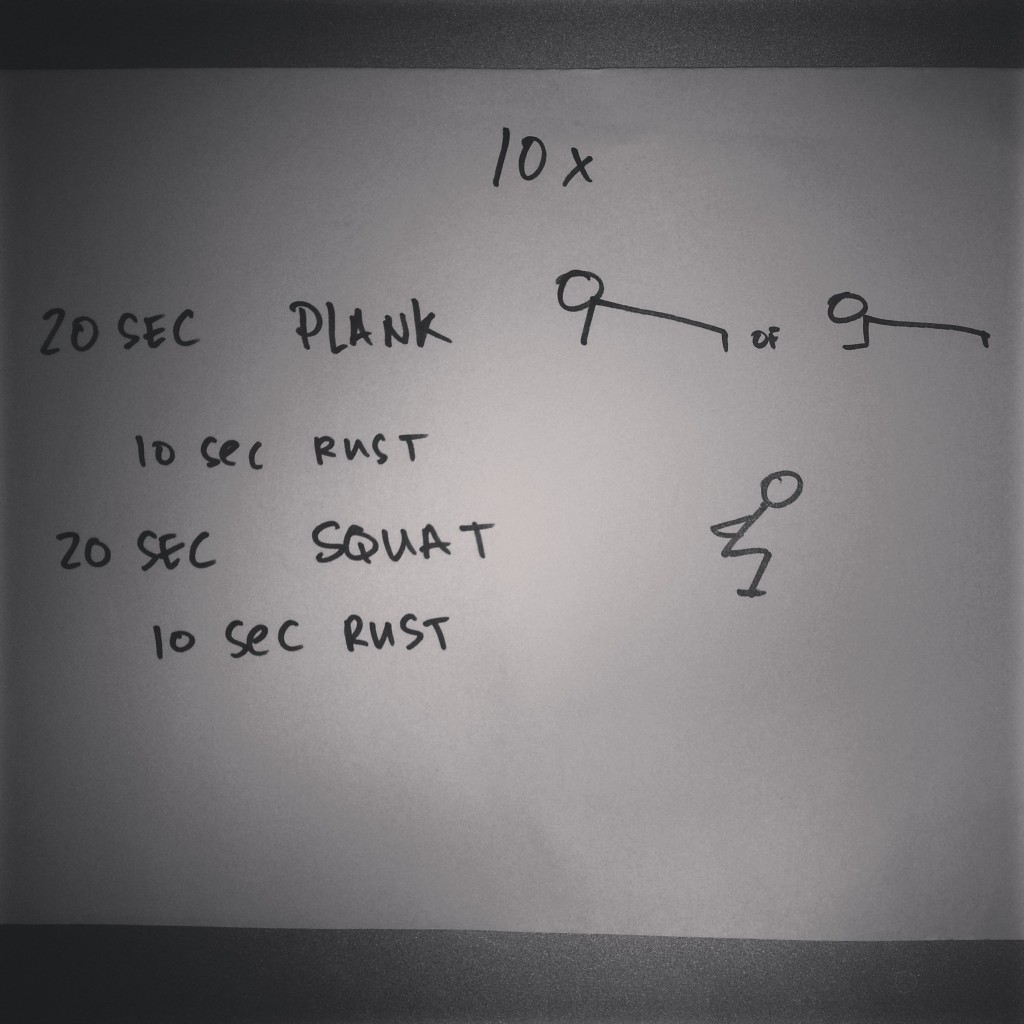 10 x
20 SEC PLANK OF
10 sec RUST
20 SEC SQUAT
10 sec RUST